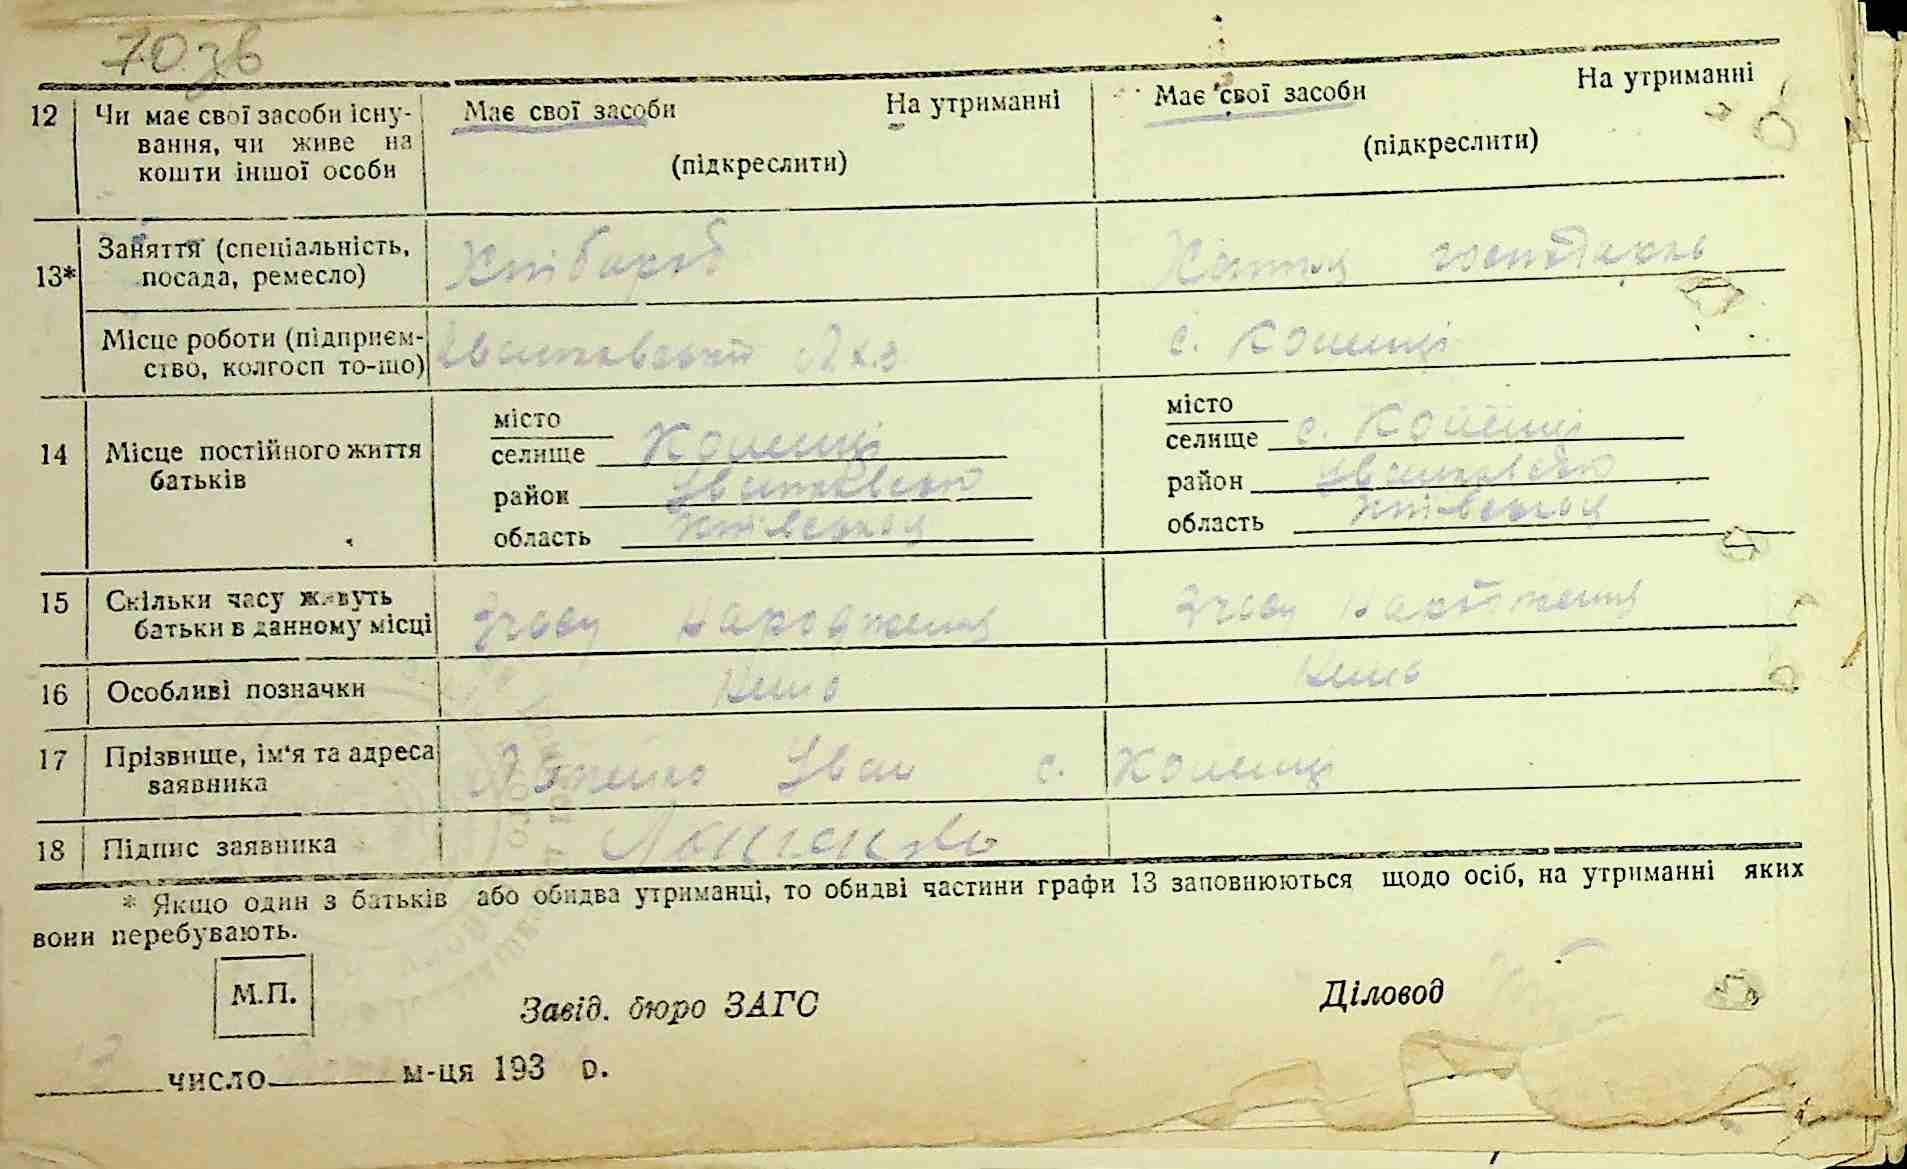 70 зв
12 Чи має свої засоби існу- Має свої засоби На утриманні Має свої засоби На утриманні
вання, чи живе на
кошти іншої особи (підкреслити) (підкреслити)
13* Заняття (спеціальність, Хлібороб Хатня господарка
посада, ремесло)
Місце роботи (підприєм- Іванківський с. Коленці
ство, колгосп то-що)
14 Місце постійного життя місто місто
батьків селище Коленці селище с. Коленці
район Іванківський район Іванківський
область Київської область Київської
15 Скільки часу живуть Зчасу народження Зчасу народження
батьки в данному місці
16 Особливі позначки Нема Нема
17 Прізвище, ім'я та адреса Іван с. Коленці
заявника
18 Підпис заявника
* Якщо один з батьків або обидва утриманці, то обидві частини графи 13 заповнюються щодо осіб, на утриманні яких
вони перебувають.
М.П. Завід. бюро ЗАГС Діловод
число м-ця 193 р.